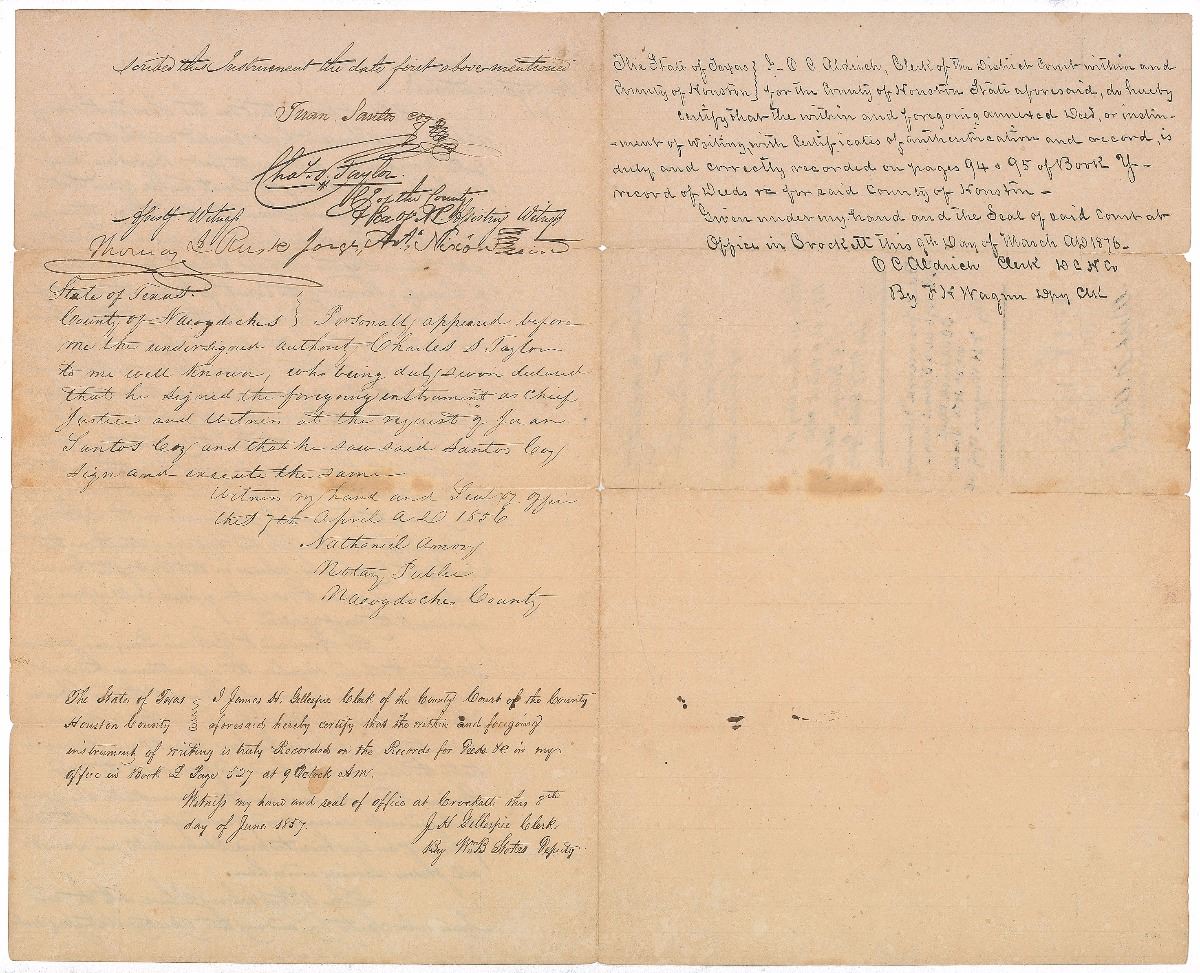 scribed this Instrument the date first above mentioned
Juan Santos Coy
Chas. S. Taylor
of the County
Assisting Witness
Assist Witness
Thomas J Rusk Jorge Anto. Nixon
State of Texas
County of Nacogdoches } Personally appeared before
me the undersigned authority Charles S Taylor
to me well known, who being duly sworn declared
that he signed the foregoing instrument as Chief
Justice and Witness at the request of Juan
Santos Coy and that he saw said Santos Coy
sign and execute the same
Witness my hand and Seal of office
this 7th April A D 1856
Nathaniel Amory
Notary Public
Nacogdoches County
The State of Texas } I James H. Gillespie Clerk of the County Court of the County
Houston County } aforesaid hereby certify that the within and foregoing
instrument of writing is truly Recorded on the Records for Deeds &c in my
office in Book Page 527 at 9 Oclock A.M.
Witness my hand and seal of office at Crockett this 8th
day of June 1857.
J H Gillespie Clerk
By Wm B Stokes Deputy
The State of Texas } I- O C Aldrich, Clerk of the District Court within and
County of Houston } for the County of Houston State aforesaid, do hereby
certify that the within and foregoing annexed Deed, or instru-
-ment of writing, with certificates of authentication and record, is
duly and correctly recorded on pages 94 & 95 of Book Y-
record of Deeds &c for said County of Houston -
Given under my hand and the Seal of said Court at
Office in Crockett this 9th Day of March AD 1876-
O C Aldrich Clerk D C H Co
By F H Wagner Dpy Clk